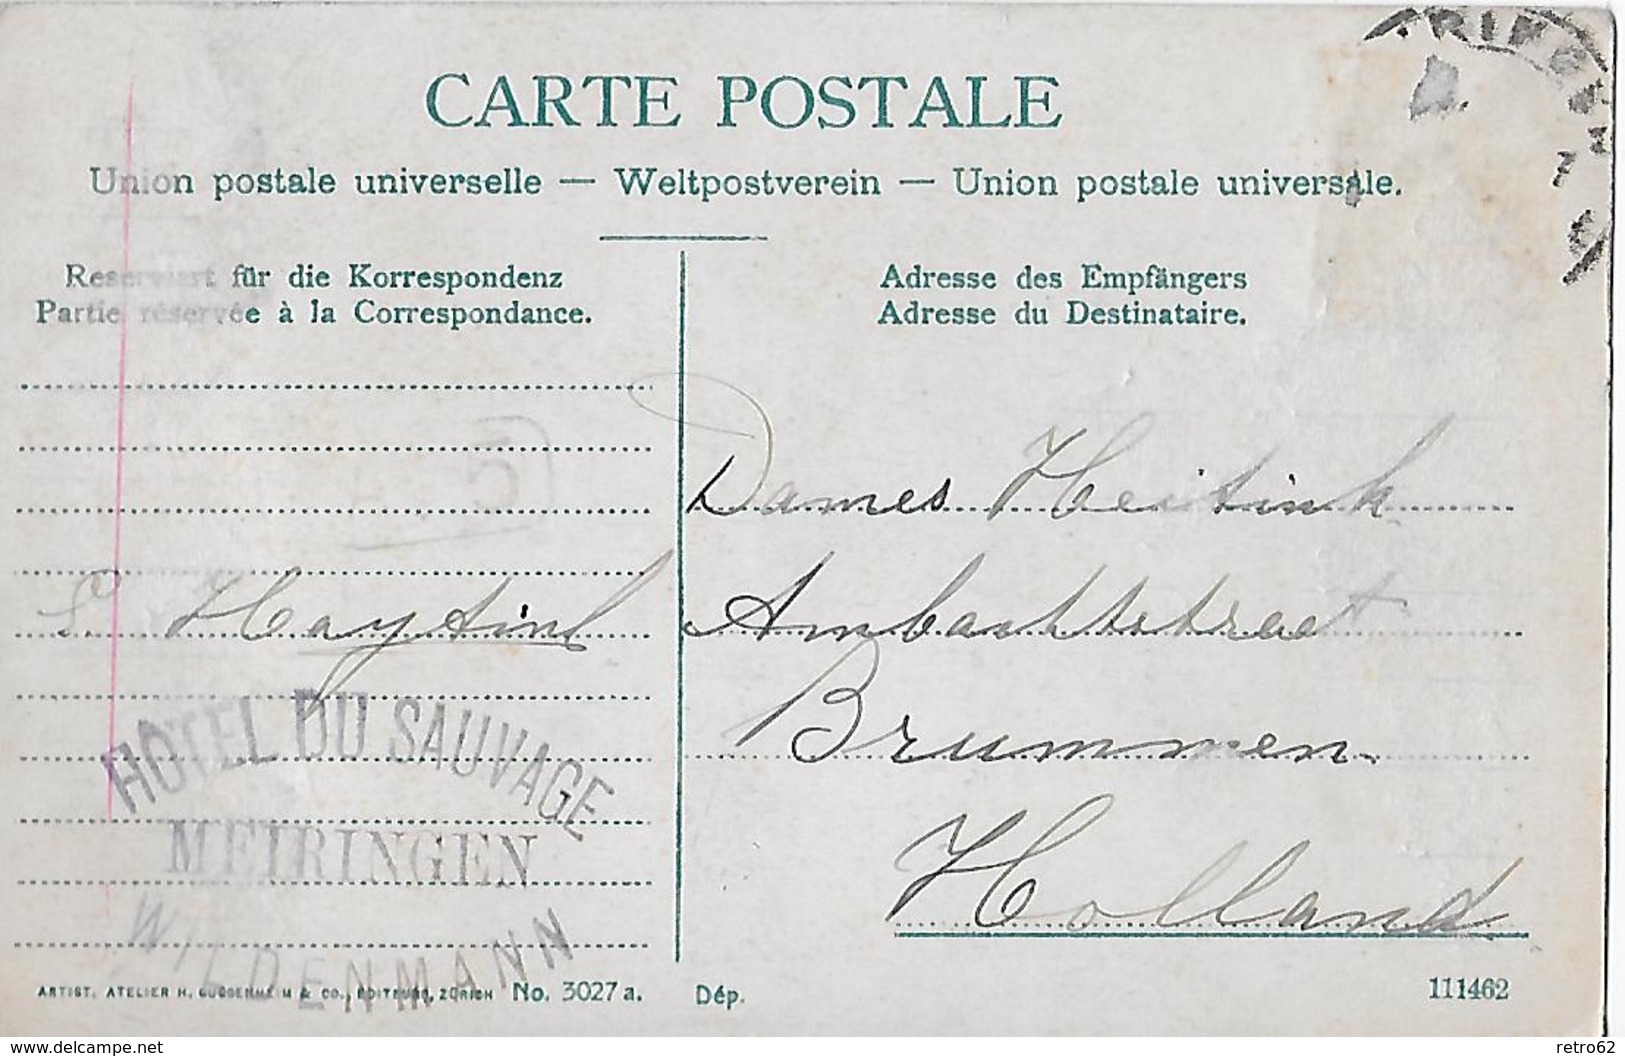 CARTE POSTALE
Union postale universelle — Weltpostverein — Union postale universale.
Reserviert für die Korrespondenz
Partie réservée à la Correspondance.
Adresse des Empfängers
Adresse du Destinataire.
Dames Heitink
Ambachtstraat
Brummen
Holland
HOTEL DU SAUVAGE
MEIRINGEN
WILDENMANN
ARTIST. ATELIER H. GUGGENHEIM & CO., EDITEURS, ZÜRICH No. 3027 a.
Dép.
111462
www.delcampe.net
retro62